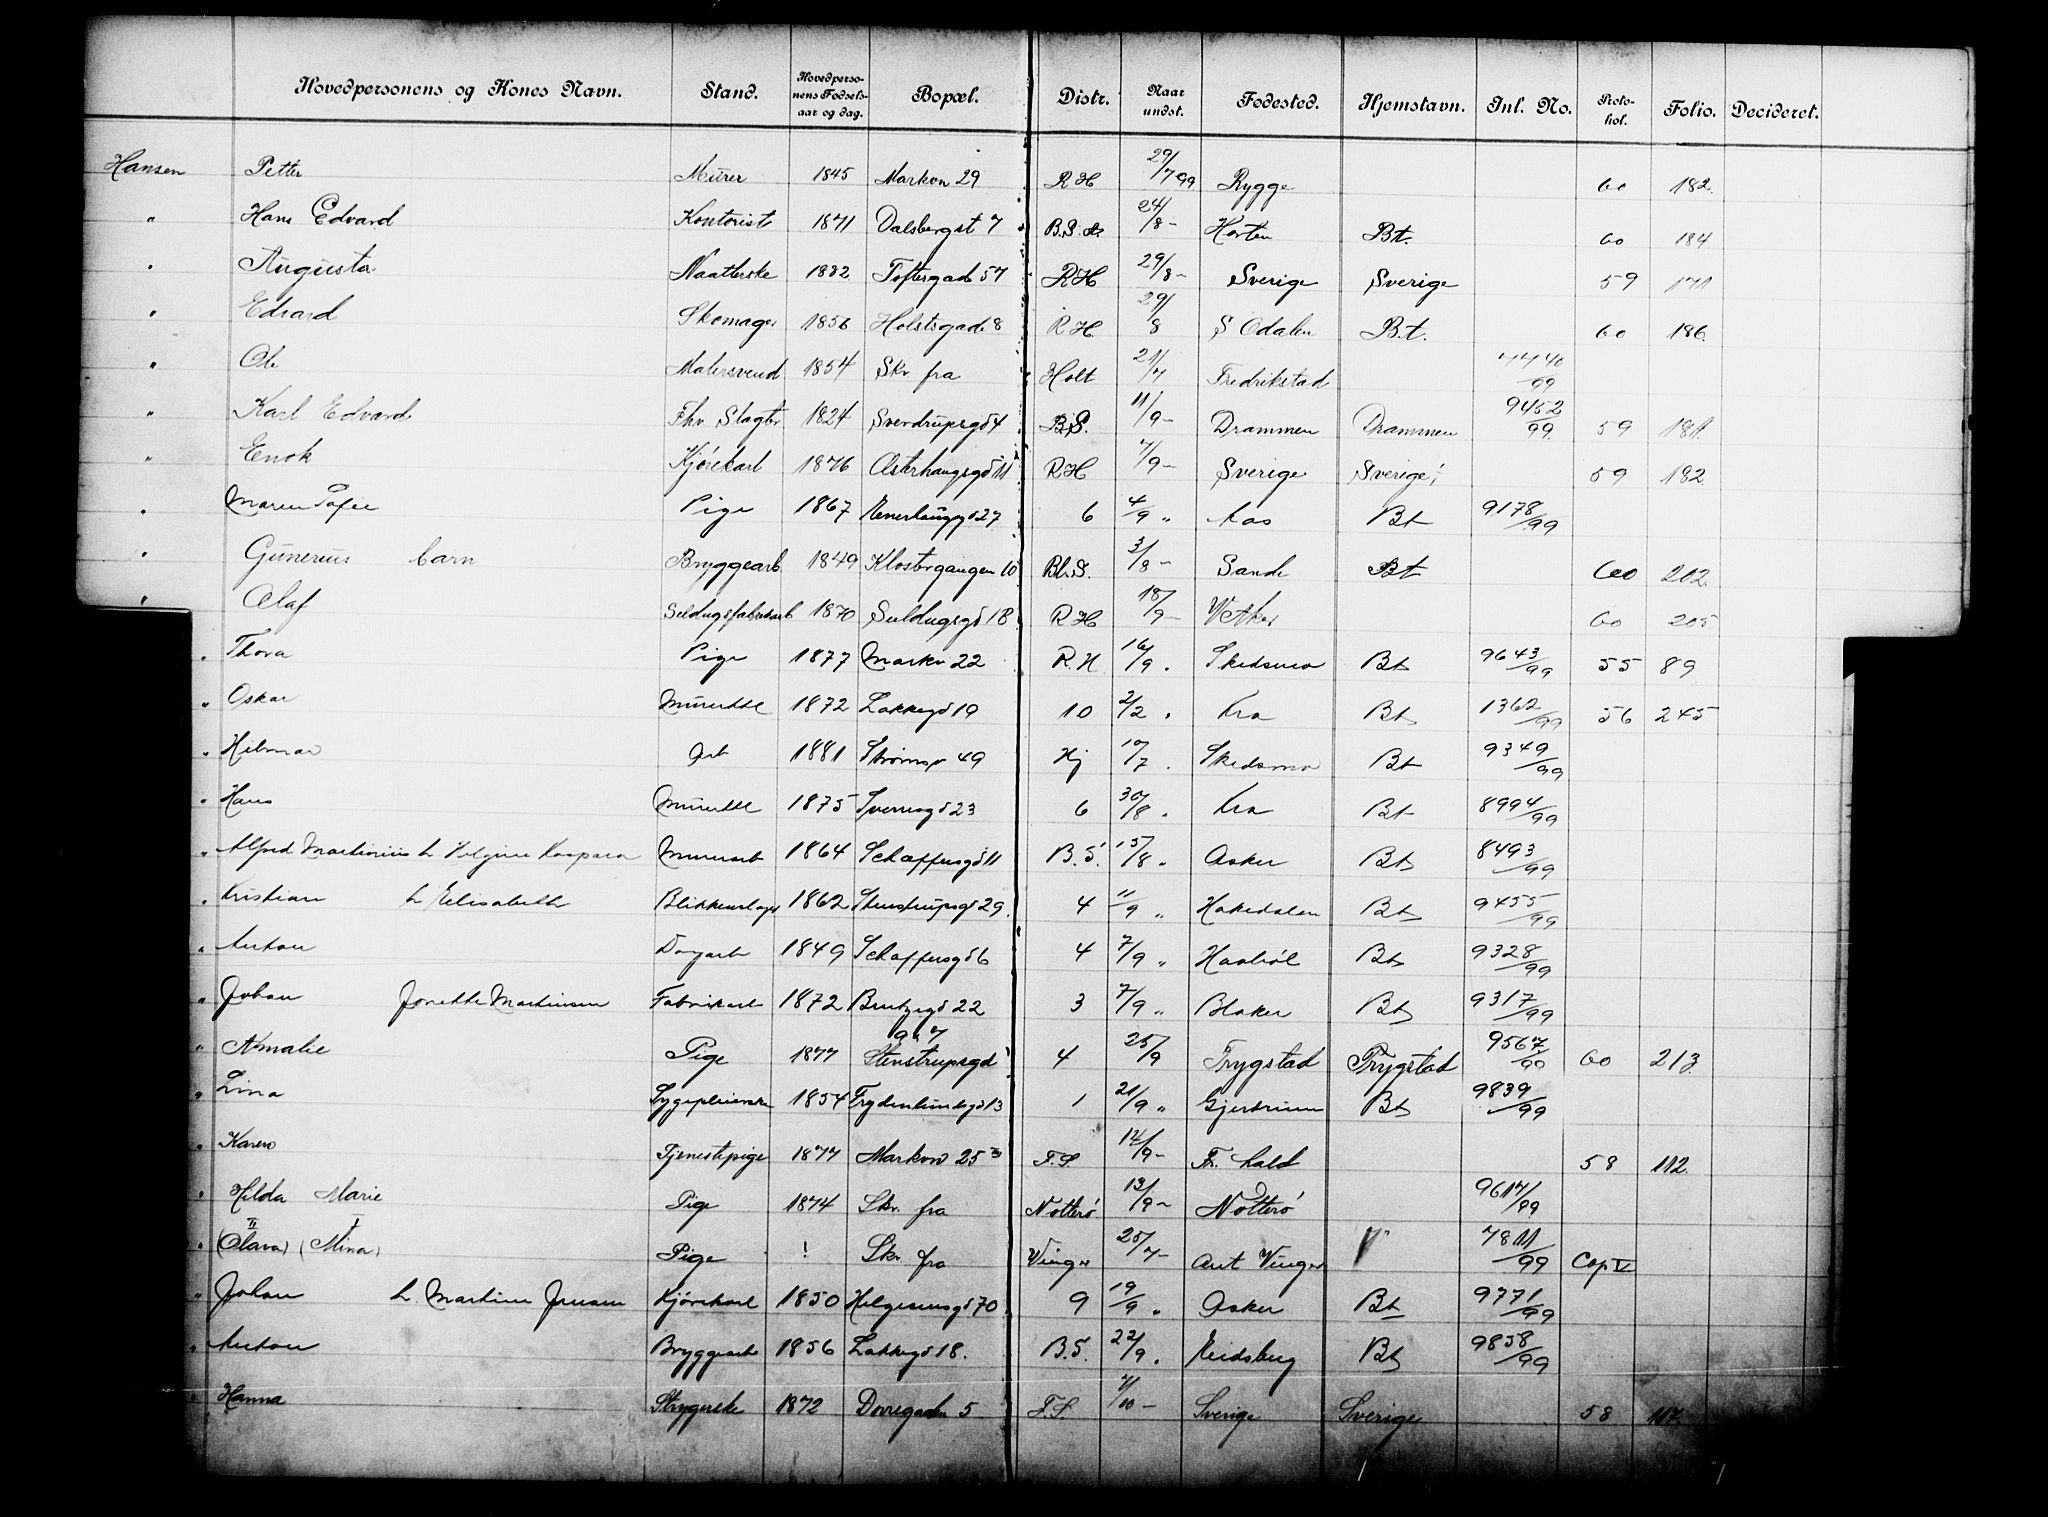 Hovedpersonens og Kones Navn. Stand. Hovedpersonens Fødselsaar og dag. Bopæl. Distr. Naar undst. Fødested. Hjemstavn. Inl. No. Protokol. Folio. Decideret.
Hansen Petter Murer 1845 Markvn 29 R H 29/7 99 Rygge 60 182.
" Hans Edvard Kontorist 1871 Dalsbergst 7 24/8 - Horten Bt. 60 184
" Augusta 1882 Toftesgade 57 R H 29/8 - Sverige Sverige 59 171
" Edvard Skomager 1856 Holstsgade 8 R H. 29/8 S Odalen B.t. 60 186
" Ole Malersvend 1854 Skr fra Holt 21/7 Fredrikstad 7440/99
" Karl Edvard Fhv. Slagter 1824 Sverdrupsgd 4 B.S. 11/9 - Drammen Drammen 9452/99. 59 181.
" Enok Kjørekarl 1876 Østerhaugsgd 11 R H 7/9 - Sverige Sverige 59 182
" Maren Sofie Pige 1867 Enerhauggd 27 6 4/9 " Aas Bt 9178/99
" Gunerius barn Bryggearb 1849 Klostergangen 10 Bl. S. 3/8 - Sande Bt 60 202.
" Olaf Seildugsfabrikarb 1870 Seildugsgd 18 R H 18/9 - V Aker 60 205
" Thora Pige 1877 Markv 22 R. H 16/9 " Skedsmo Bt 9643/99 55 89
" Oskar 1872 Lakkegd 19 10 2/2 " Kra Bt 1362/99 56 245
" Hilmar Arb 1881 Strømsv 49 Hj 10/7 " Skedsmo Bt 9349/99
" Hans 1875 Sverresgd 23 6 30/8 " Kra Bt 8994/99
" Alfred Martinius h. Kaspara Murerarb 1864 Schaffersgd 11 B. S. 15/8 " Asker Bt 8493/99
" Kristian h Elisabeth Blikkenslager 1862 Stenstrupsgd 29. 4 11/9 " Hakedalen Bt 9455/99
" Anton Dagarb 1849 Schaffersgd 6 4 7/9 " Haabøl Bt 9328/99
" Johan Jonette Martinsen Fabrikarb 1872 22 3 7/9 " Blaker Bt 9317/99
" Amalie Pige 1877 Stenstrupsgd 9 a. 7 4 25/9 Trygstad Trygstad 9567/99 60 213
" Lina Sygepleierske 1854 Frydenlundsgd 13 1 21/9 " Gjerdrum Bt 9839/99
" Karen Tjenestepige 1877 Markvn 25 F. S. 14/9 - Fr. hald 58 112
" Hilda Marie Pige 1874 Skr. fra Nøtterø 13/9 - Nøtterø 9617/99
" II (Olava) I (Mina) Pige ! Skr. fra Vinger 25/7 - Vinger 7811/99 Cop V
" Johan h. Martine Jensen Kjørekarl 1850 Helgesensgd 70 9 19/9 " Asker Bt 9771/99
" Anton Bryggearb 1856 Lakkegd 18. B. S. 22/9 " Eidsberg Bt 9858/99
" Hanna Strygerske 1872 Dovregaden 5 F. S. /10 - Sverige Sverige 58 117